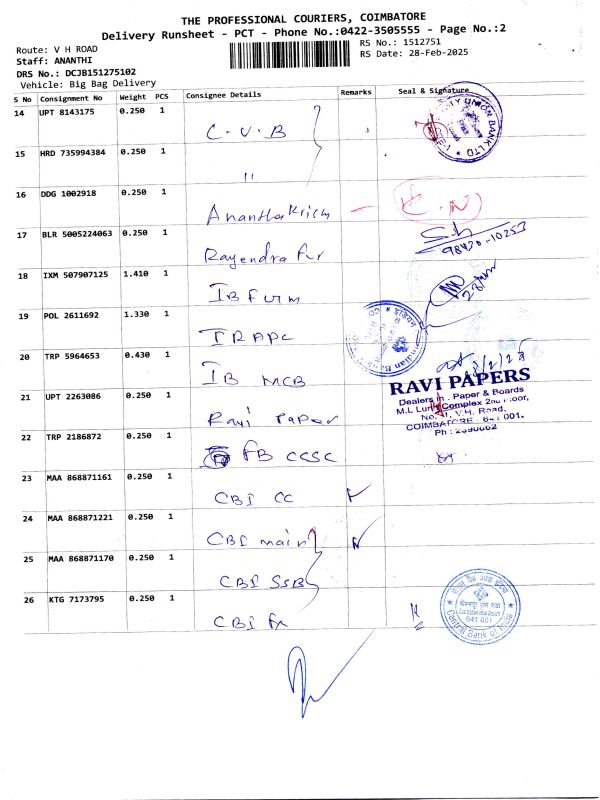 THE PROFESSIONAL COURIERS, COIMBATORE
Delivery Runsheet - PCT - Phone No.:0422-3505555 - Page No.:2
Route: V H ROAD
Staff: ANANTHI
DRS No.: DCJB151275102
Vehicle: Big Bag Delivery
RS No.: 1512751
RS Date: 28-Feb-2025
S No Consignment No Weight PCS Consignee Details Remarks Seal & Signature
14 UPT 8143175 0.250 1 C.U.B
15 HRD 735994384 0.250 1 "
16 DDG 1002918 0.250 1
17 BLR 5005224063 0.250 1 Rajendra Fur
98420-10253
18 IXM 507907125 1.410 1
19 POL 2611692 1.330 1
20 TRP 5964653 0.430 1 IB MCB
21 UPT 2263086 0.250 1 Ravi Paper
RAVI PAPERS
Dealers in : Paper & Boards
Complex 2nd Floor,
V.H. Road,
COIMBATORE - 641 001.
22 TRP 2186872 0.250 1 CCSC
23 MAA 868871161 0.250 1 CBI CC
24 MAA 868871221 0.250 1 CBI main
25 MAA 868871170 0.250 1 CBI SSB
26 KTG 7173795 0.250 1 CBI
UNION BANK LTD
Indian Bank
641 001
Central Bank of India